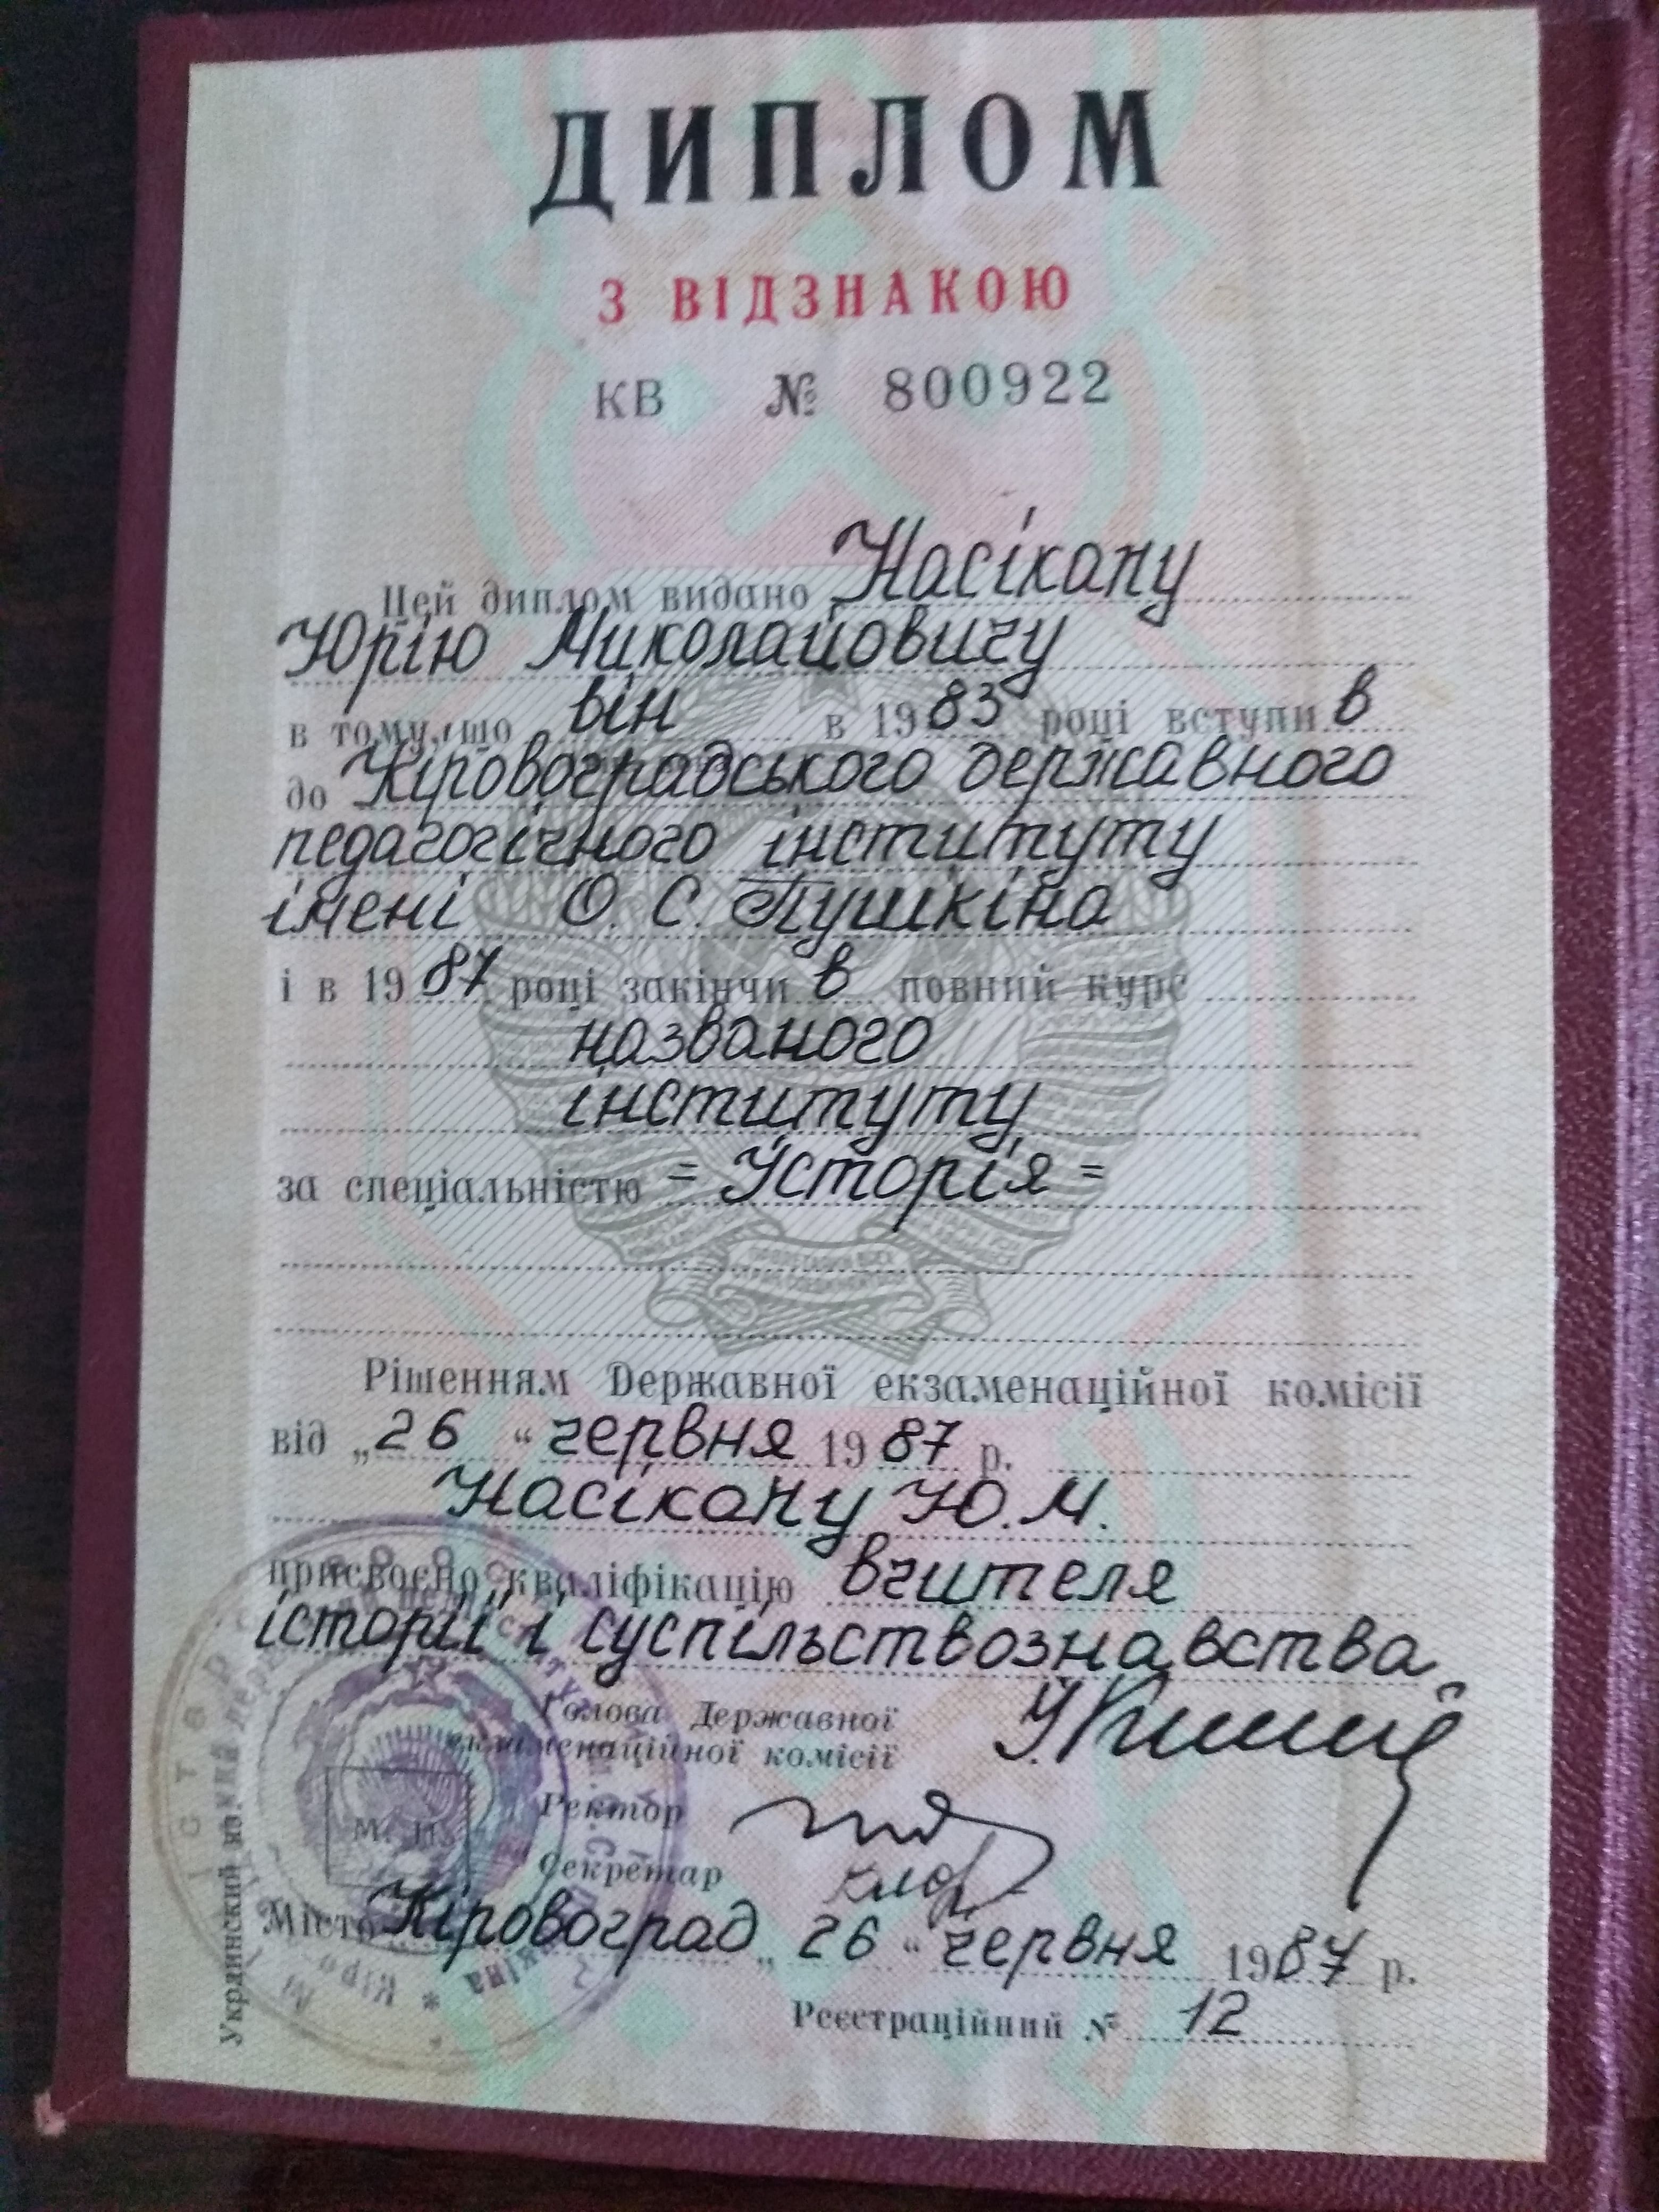 ДИПЛОМ
З ВІДЗНАКОЮ
КВ № 800922
Цей диплом видано Насікану
Юрію Миколайовичу
в тому, що він в 1983 році вступив
до Кіровоградського державного
педагогічного інституту
імені О. С. Пушкіна
і в 1987 році закінчив повний курс
названого
інституту
за спеціальністю = Історія =
Рішенням Державної екзаменаційної комісії
від „26“ червня 1987 р.
Насікану Ю. М.
присвоєно кваліфікацію вчителя
історії і суспільствознавства
Голова Державної
екзаменаційної комісії
Ректор
Секретар
М. П.
Місто Кіровоград „26“ червня 1987 р.
Реєстраційний № 12
Украинский